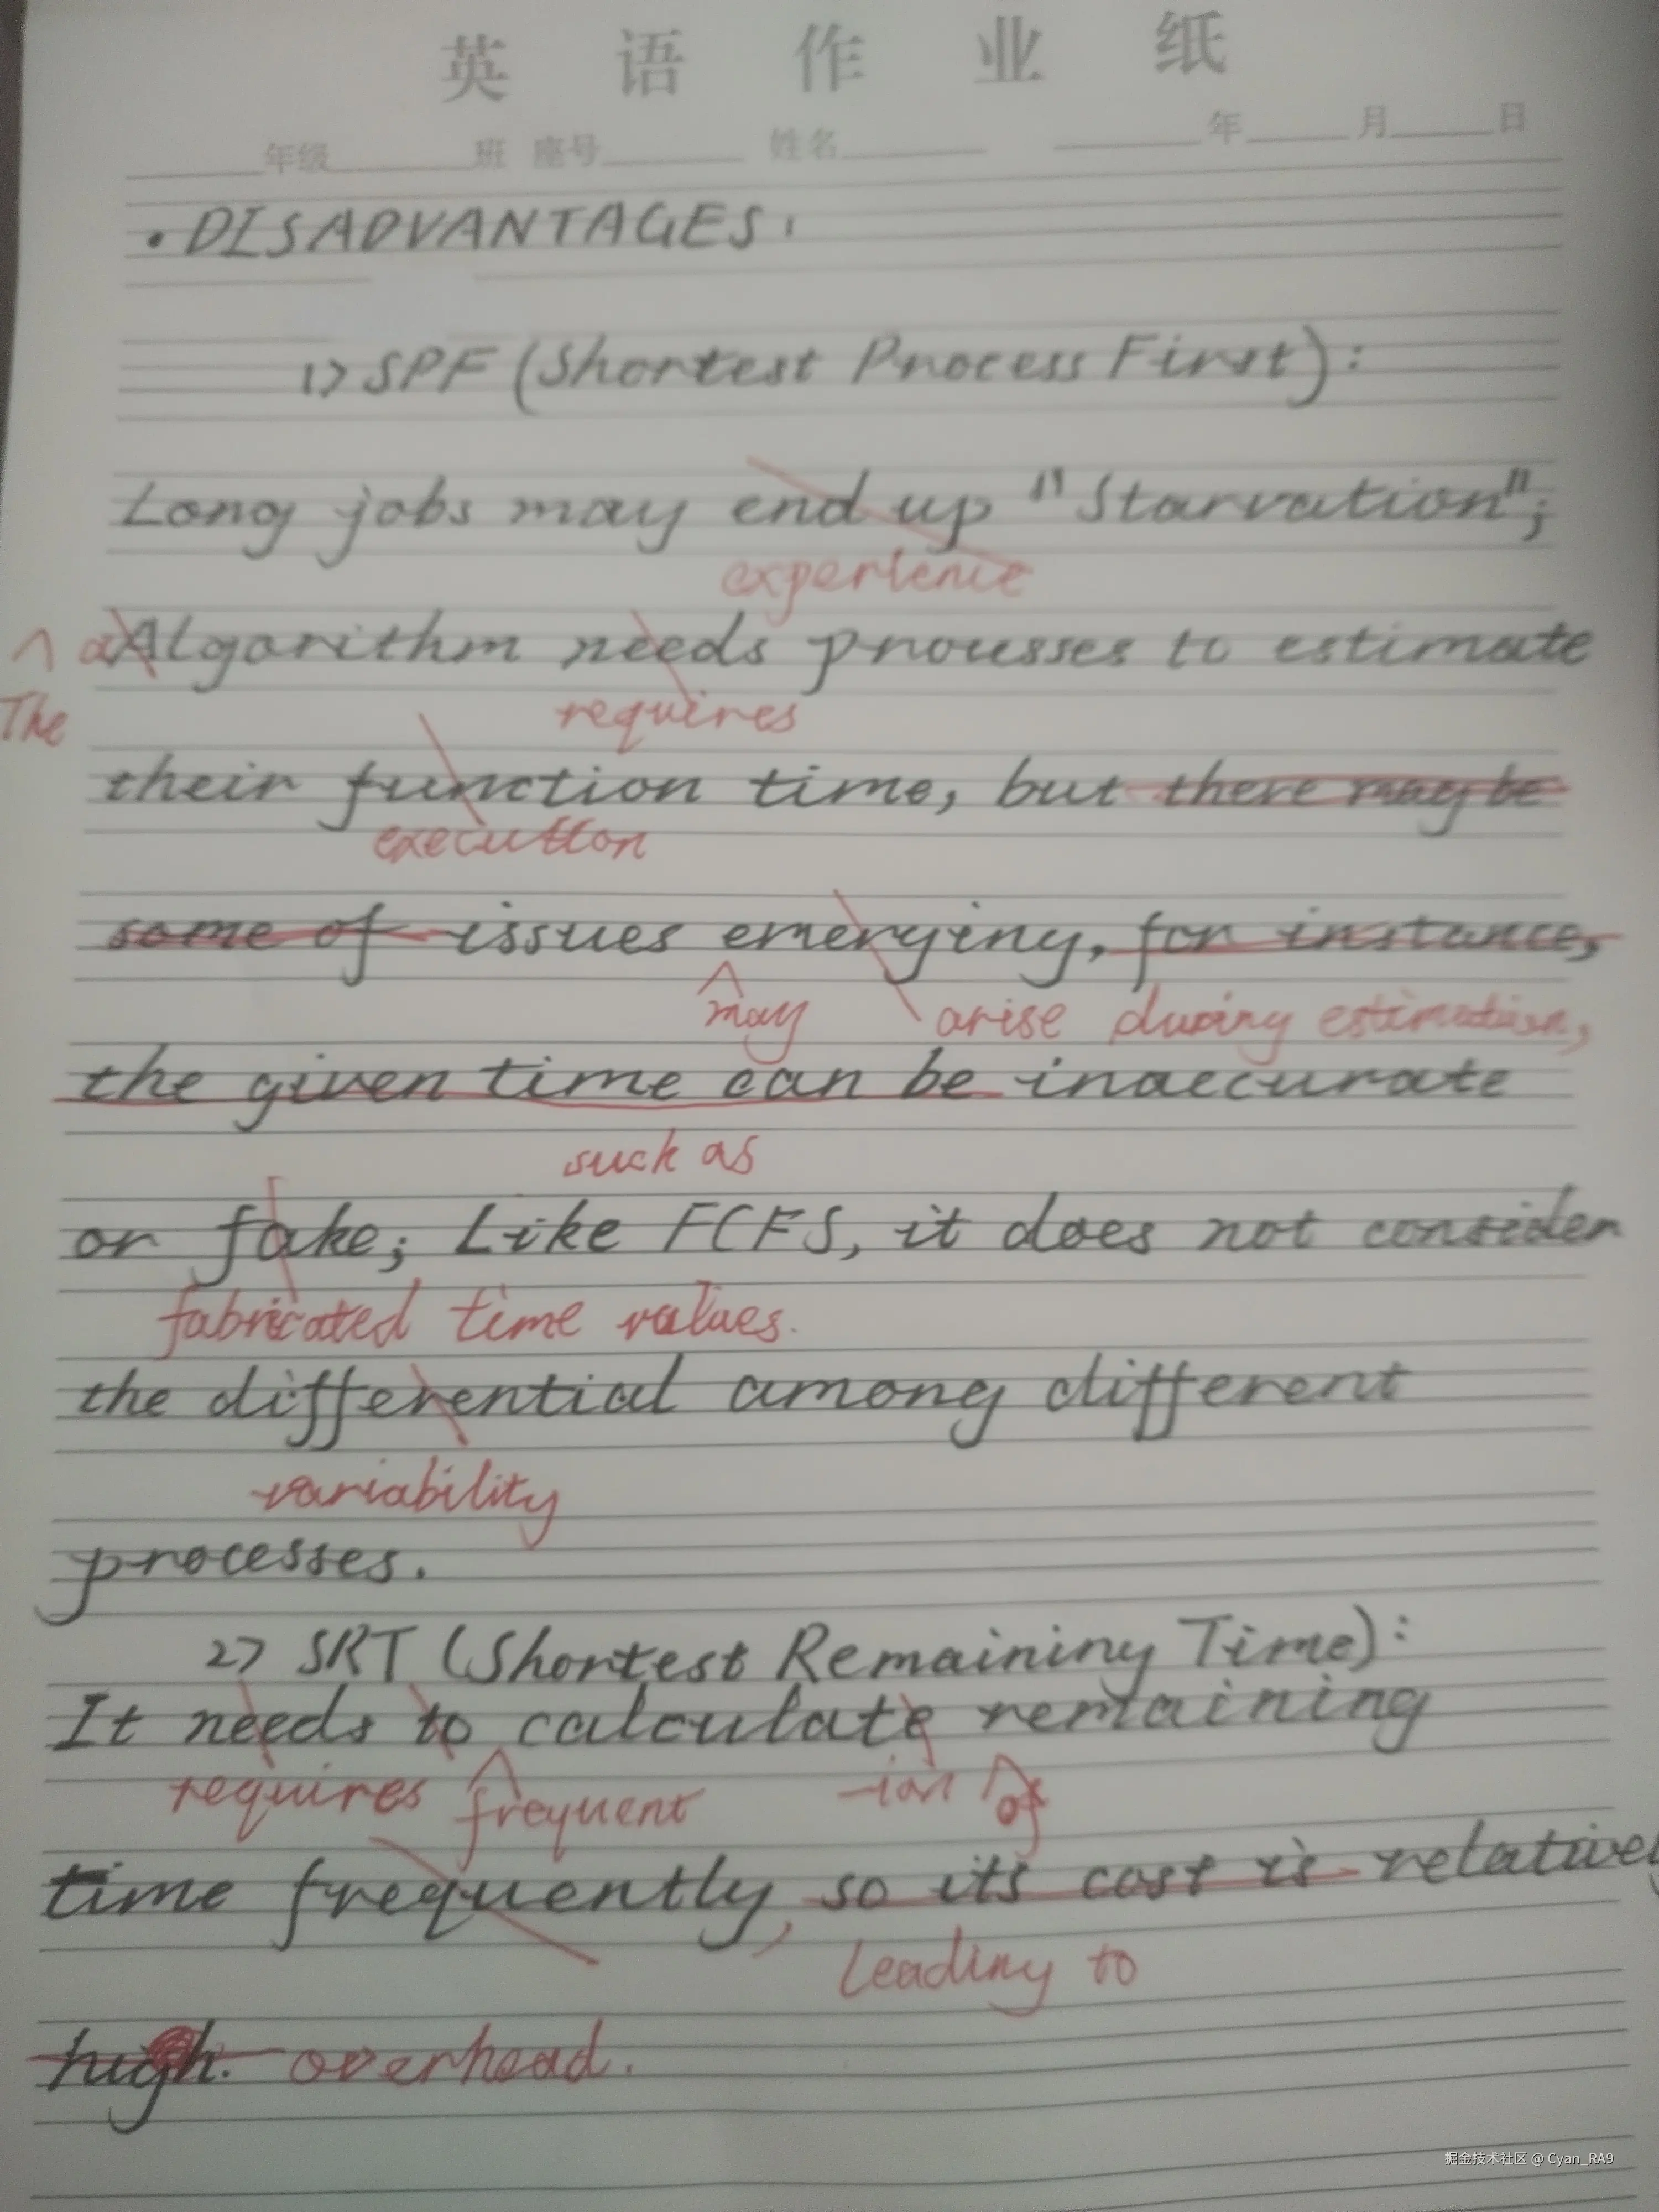 英 语 作 业 纸
年级 班 座号 姓名 年 月 日
• DISADVANTAGES:
1> SPF (Shortest Process First):
Long jobs may end up "Starvation";
experience
a Algorithm needs prousses to estimate
The
requires
their function time, but there may be
execution
some of issues emerging, for instance,
may arise during estimation,
the given time can be inaccurate
such as
or fake; Like FCFS, it does not consider
fabricated time values.
the differential among different
variability
processes.
2> SRT (Shortest Remaining Time):
It needs to calculate remaining
requires frequent -ion of
time frequently, so its cost is relatively
leading to
high. overhead.
掘金技术社区 @ Cyan_RA9